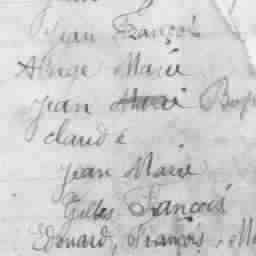 Jean François
Marie
Jean Marie
claude
Jean Marie
Gilles François
Edouard, François,